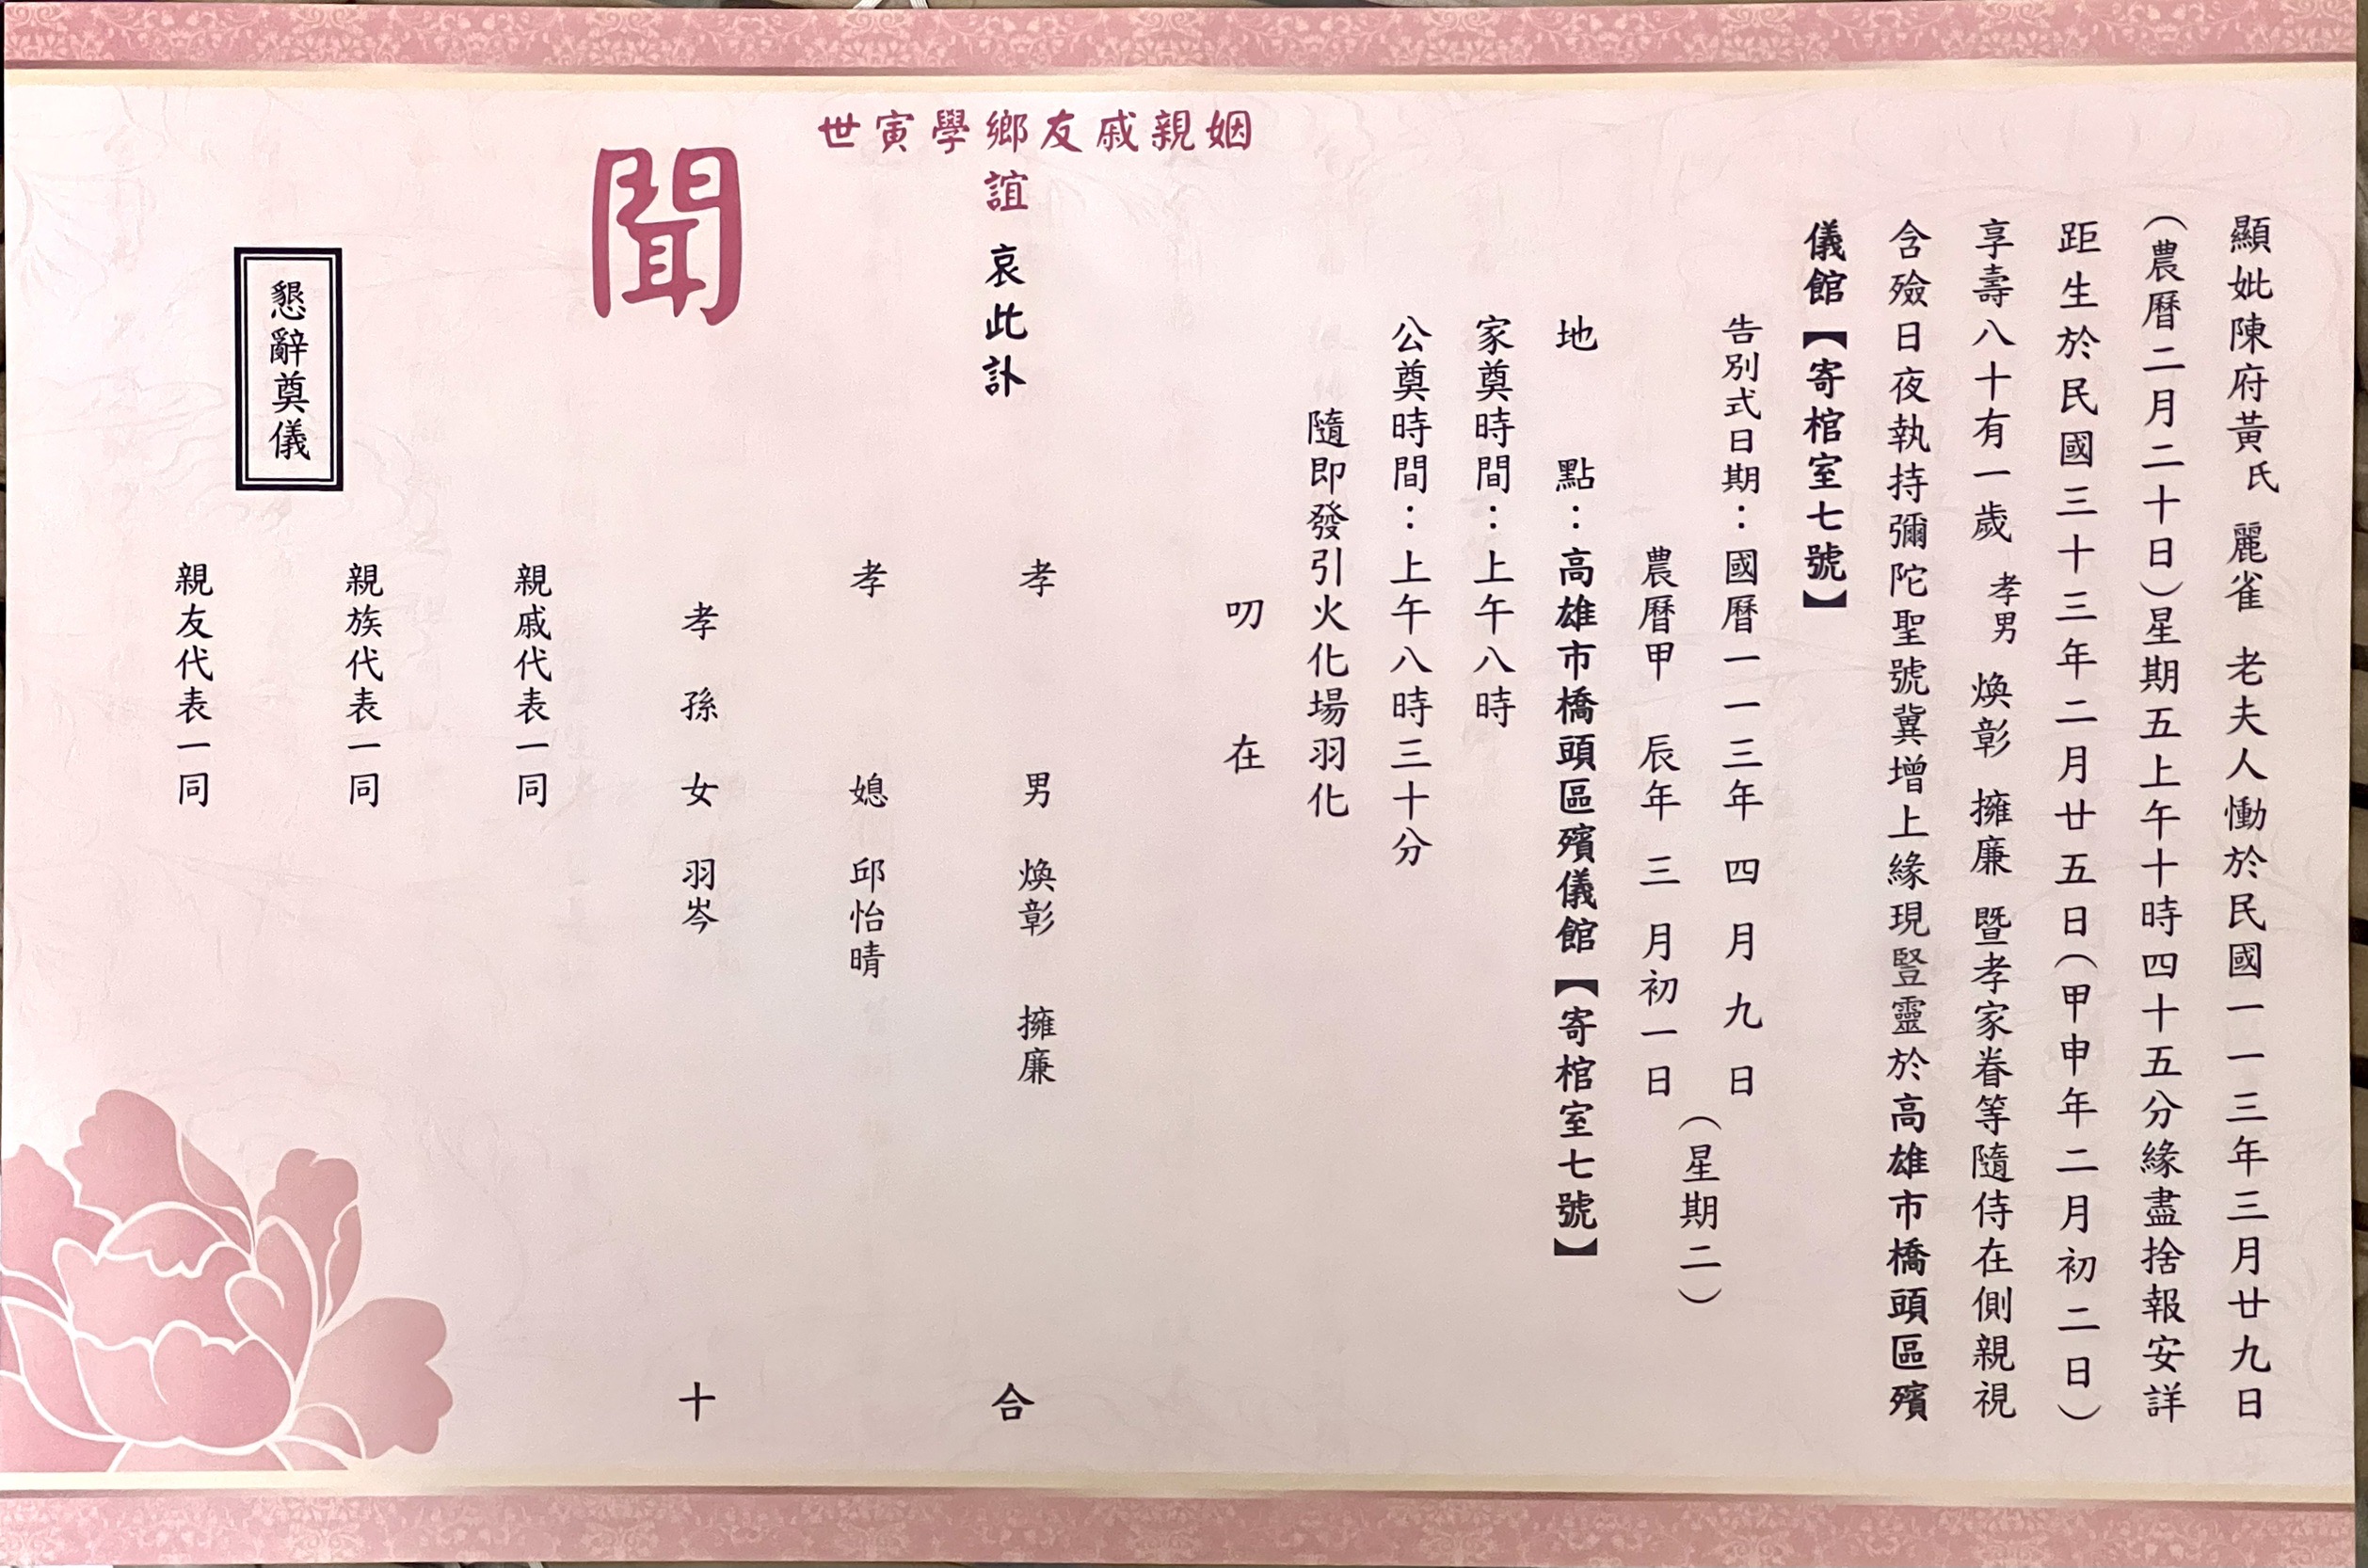 顯妣陳府黃氏 麗雀 老夫人慟於民國一一三年三月廿九日
（農曆二月二十日）星期五上午十時四十五分緣盡捨報安詳
距生於民國三十三年二月廿五日（甲申年二月初二日）
享壽八十有一歲 孝男 煥彰 擁廉 暨孝家眷等隨侍在側親視
含殮日夜執持彌陀聖號冀增上緣現豎靈於高雄市橋頭區殯
儀館【寄棺室七號】
告別式日期：國曆一一三年 四月九日
農曆甲 辰年 三月初一日
（星期二）
地 點：高雄市橋頭區殯儀館【寄棺室七號】
家奠時間：上午八時
公奠時間：上午八時三十分
隨即發引火化場羽化
叨 在
姻親戚友鄉學寅世
誼 哀此訃
聞
孝 男 煥彰 擁廉 合
孝 媳 邱怡晴
孝 孫 女 羽岑 十
親戚代表一同
親族代表一同
懇辭奠儀
親友代表一同